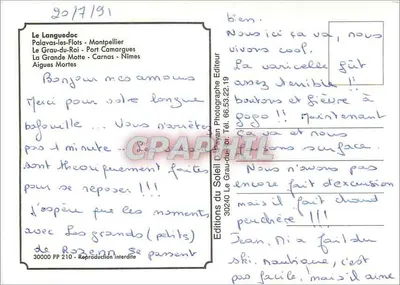 20/7/91
Le Languedoc
Palavas-les-Flots - Montpellier
Le Grau-du-Roi - Port Camargues
La Grande Motte - Carnos - Nîmes
Aigues Mortes
Bonjour mes amours
Merci pour votre longue
bafouille ... Vous n'arrêtez
pas 1 minute .. 
sont théoriquement faites
pour se reposer !!!
J'espère que les moments
avec Les grands (petits)
de Rozenn se passent
30000 PP 210 - Reproduction interdite
Editions du Soleil Photographe Editeur
30240 Le Grau-du-Roi Tel. 66.53.22.19
CPAPHIL
bien.
Nous ici ça va, nous
vivons cool.
La varicelle fût
assez terrible !!
boutons et fièvre à
gogo !! Maintenant
ça va et nous
surface.
Nous n'avons pas
encore fait d'excursion
mais il fait chaud
peuchère !!!
Jean. Mi a fait du
ski. nautique, c'est
pas facile, mais il aime